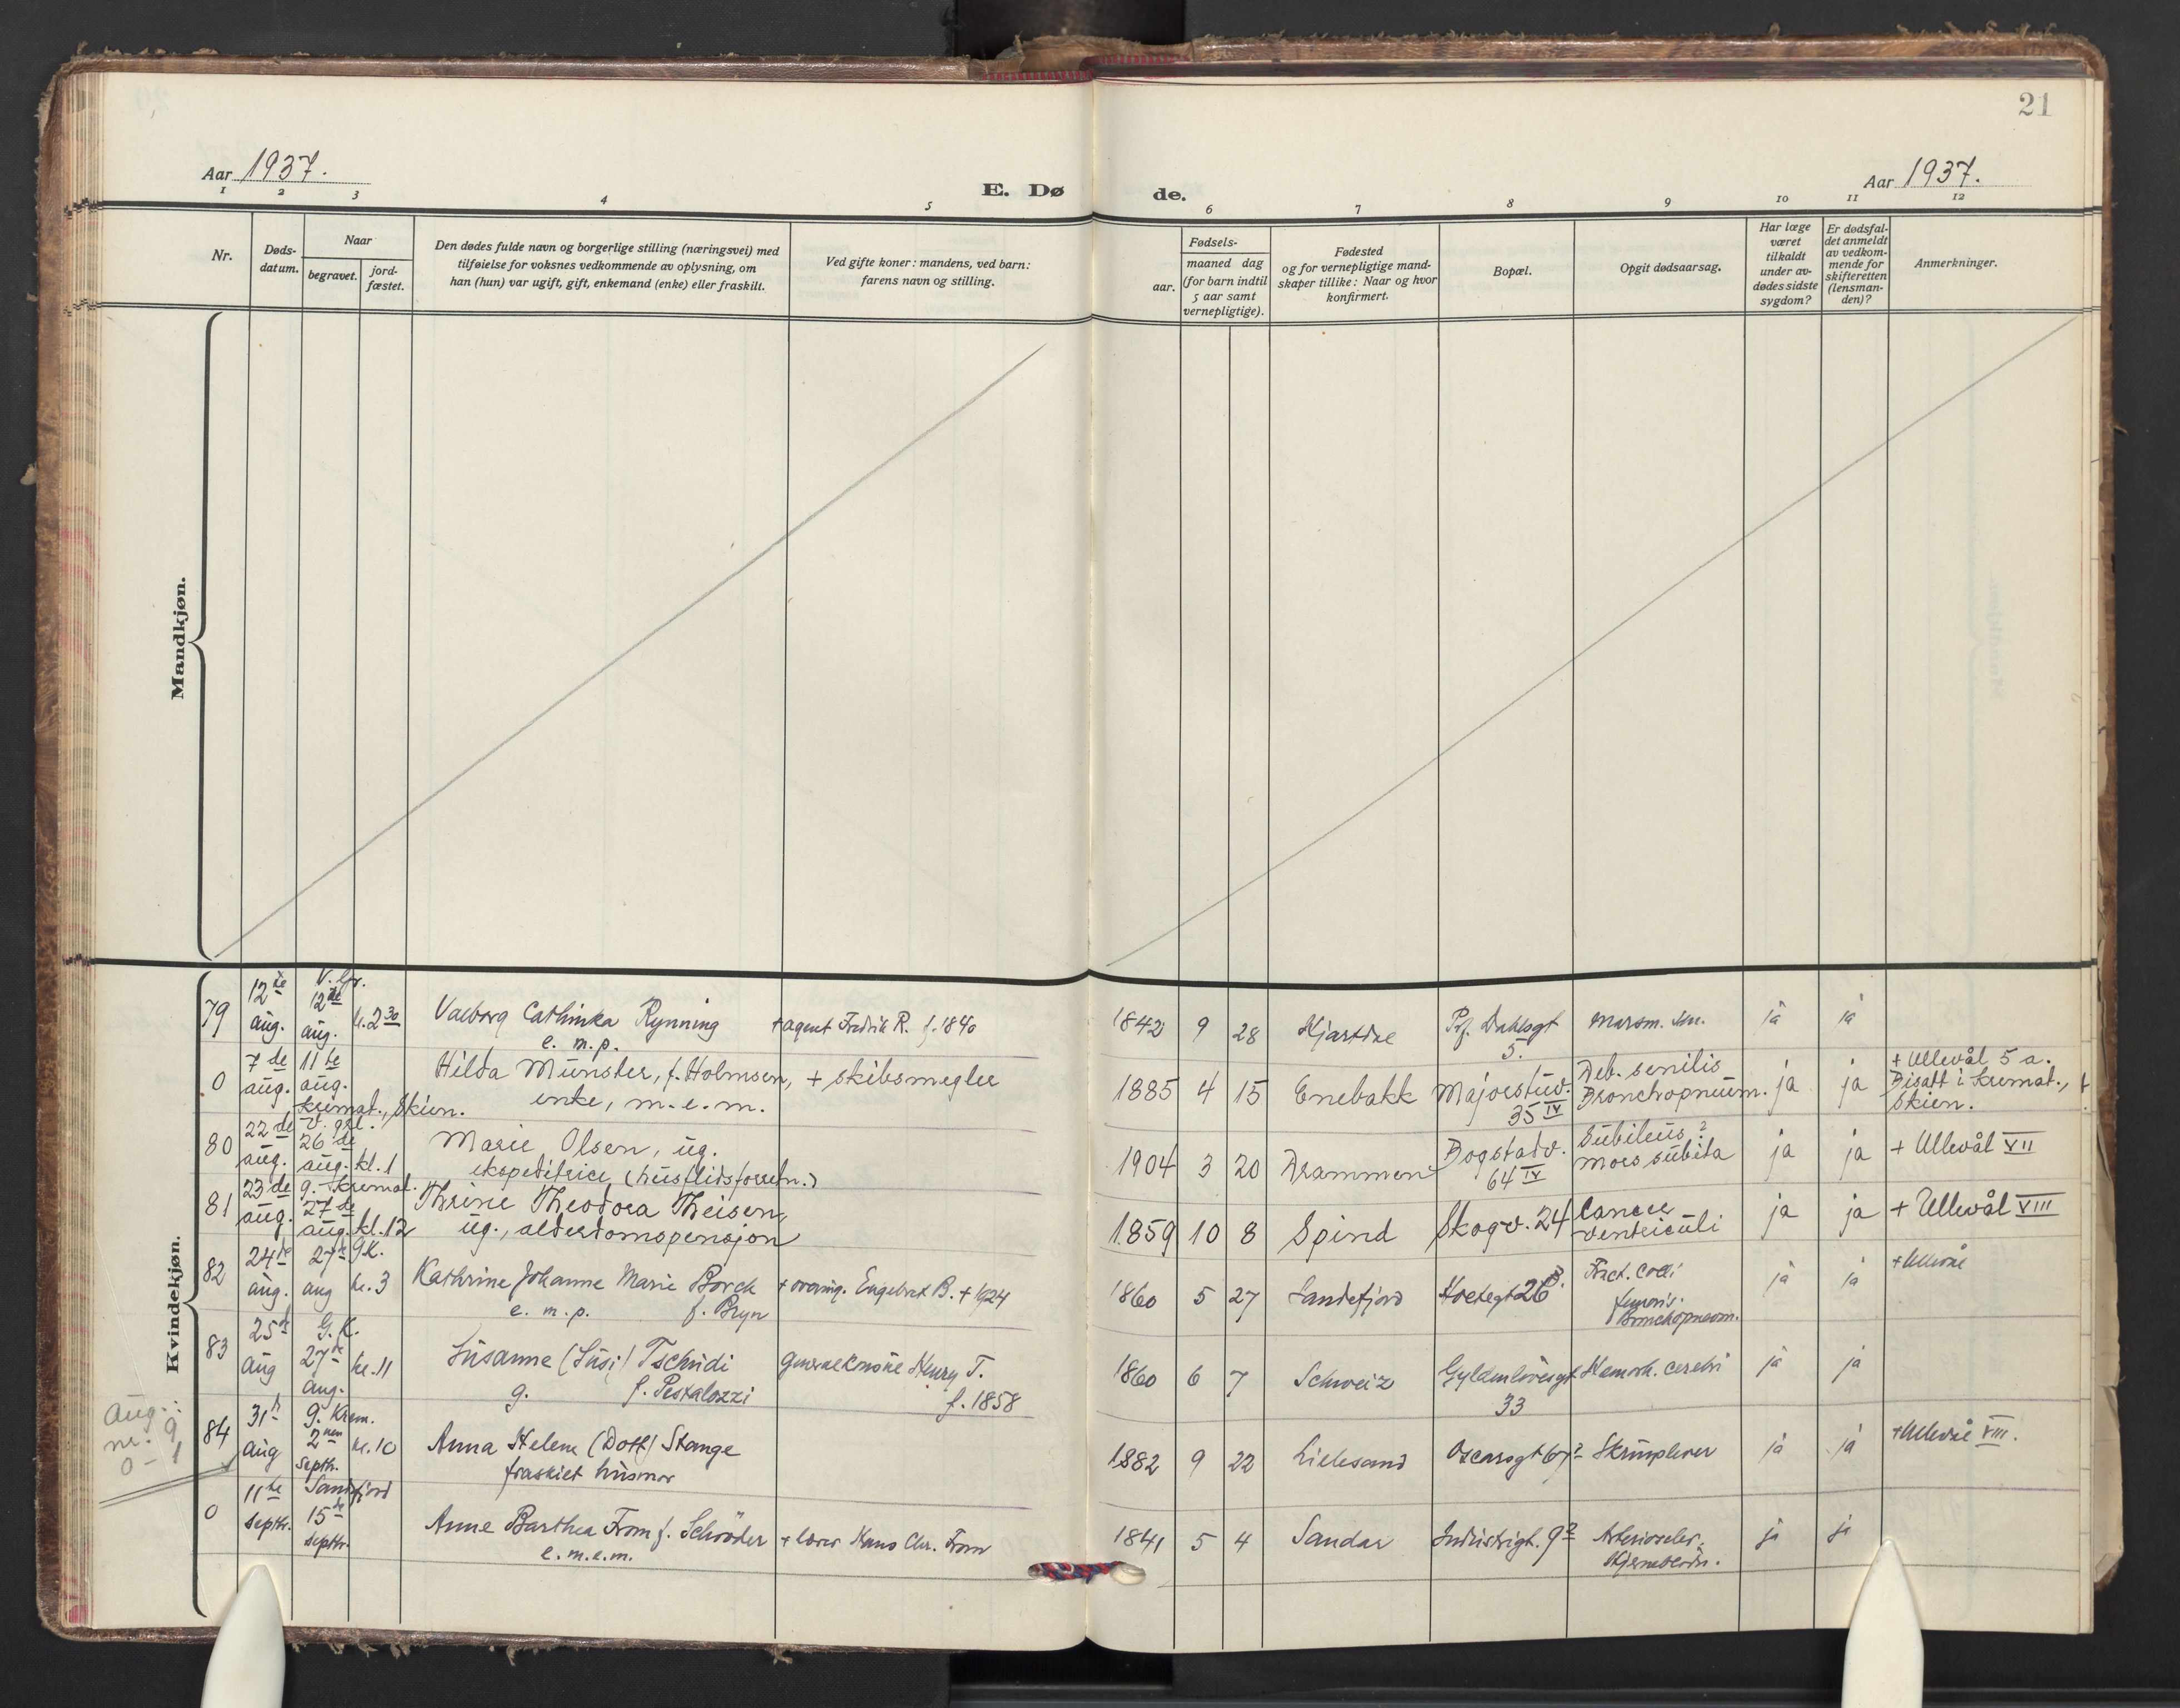 21
Aar 1937.
Aar 1937.
E. Dø
de.
1 2 3 4 5 6 7 8 9 10 11 12
Nr.
Døds-
datum.
Naar
begravet.
jord-
fæstet.
Den dødes fulde navn og borgerlige stilling (næringsvei) med
tilføielse for voksnes vedkommende av oplysning, om
han (hun) var ugift, gift, enkemand (enke) eller fraskilt.
Ved gifte koner: mandens, ved barn:
farens navn og stilling.
Fødsels-
aar.
maaned dag
(for barn indtil
5 aar samt
vernepligtige).
Fødested
og for vernepligtige mand-
skaper tillike: Naar og hvor
konfirmert.
Bopæl.
Opgit dødsaarsag.
Har læge
været
tilkaldt
under av-
dødes sidste
sygdom?
Er dødsfal-
det anmeldt
av vedkom-
mende for
skifteretten
(lensman-
den)?
Anmerkninger.
Mandkjøn.
Kvindekjøn.
79 12te aug. V. Gr. 12te aug. kl. 2 30 Valborg Cathinka Rynning
e. m. p.
+ agent Fredrik R. f. 1840
1842 9 28 Pf. Dahlsgt
5.
ja ja
0 7de aug. 11te aug.
Kremat., Skien.
Hilda Münster, f. Holmsen,
enke, m. e. m.
+ skibsmegler
1885 4 15 Enebakk Majorstuv.
35 IV
Deb. senilis
Bronchopneum.
ja ja
+ Ullevål 5 a.
Bisatt i kremat.,
Skien.
80 22de aug. V. grl. 26de aug. kl. 1 Marie Olsen, ug.
ekspeditrice (husflidsforretn.)
1904 3 20 Drammen Bogstadv.
64 IV
Mors subita
ja ja + Ullevål VII
81 23de aug. g. kremat. 27de aug. kl. 12 Thrine Theodora Theisen,
ug., alderdomspensjon
1859 10 8 Spind Skogv. 24 Cancer
ventriculi
ja ja + Ullevål VIII
82 24de aug. 27de GK. aug kl. 3 Kathrine Johanne Marie Borch
e. m. p. f. Bryn
+ Engebret B. + 1924
1860 5 27 Sandefjord 26 Fract. colli
femoris.
Bronchopneum.
ja ja + Ullevål
83 25de aug G. K. 27de aug. kl. 11 Susanne (Susi) Tschudi
g. f. Pestalozzi
Generalkonsul Henry T.
f. 1858
1860 6 7 Schweiz Gyldenløvesgt
33
Hæmorh. cerebri
ja ja
Aug.:
nr. 9,
0 - 1
84 31te aug g. Krem. 2nen septbr. kl. 10 Anna Helene (Dott) Stange
fraskilt husmor
1882 9 22 Lillesand Oscarsgt 67 2 Skrumplever
ja ja + Ullevål VIII.
0 11te septbr. Sandefjord 15de septbr. Anne Barthea From f. Schrøder
e. m. e. m.
+ lærer Hans Chr. From
1841 5 4 Sandar Industrigt. 9 2 Arterioscler.
Hjerneblødn.
ja ja